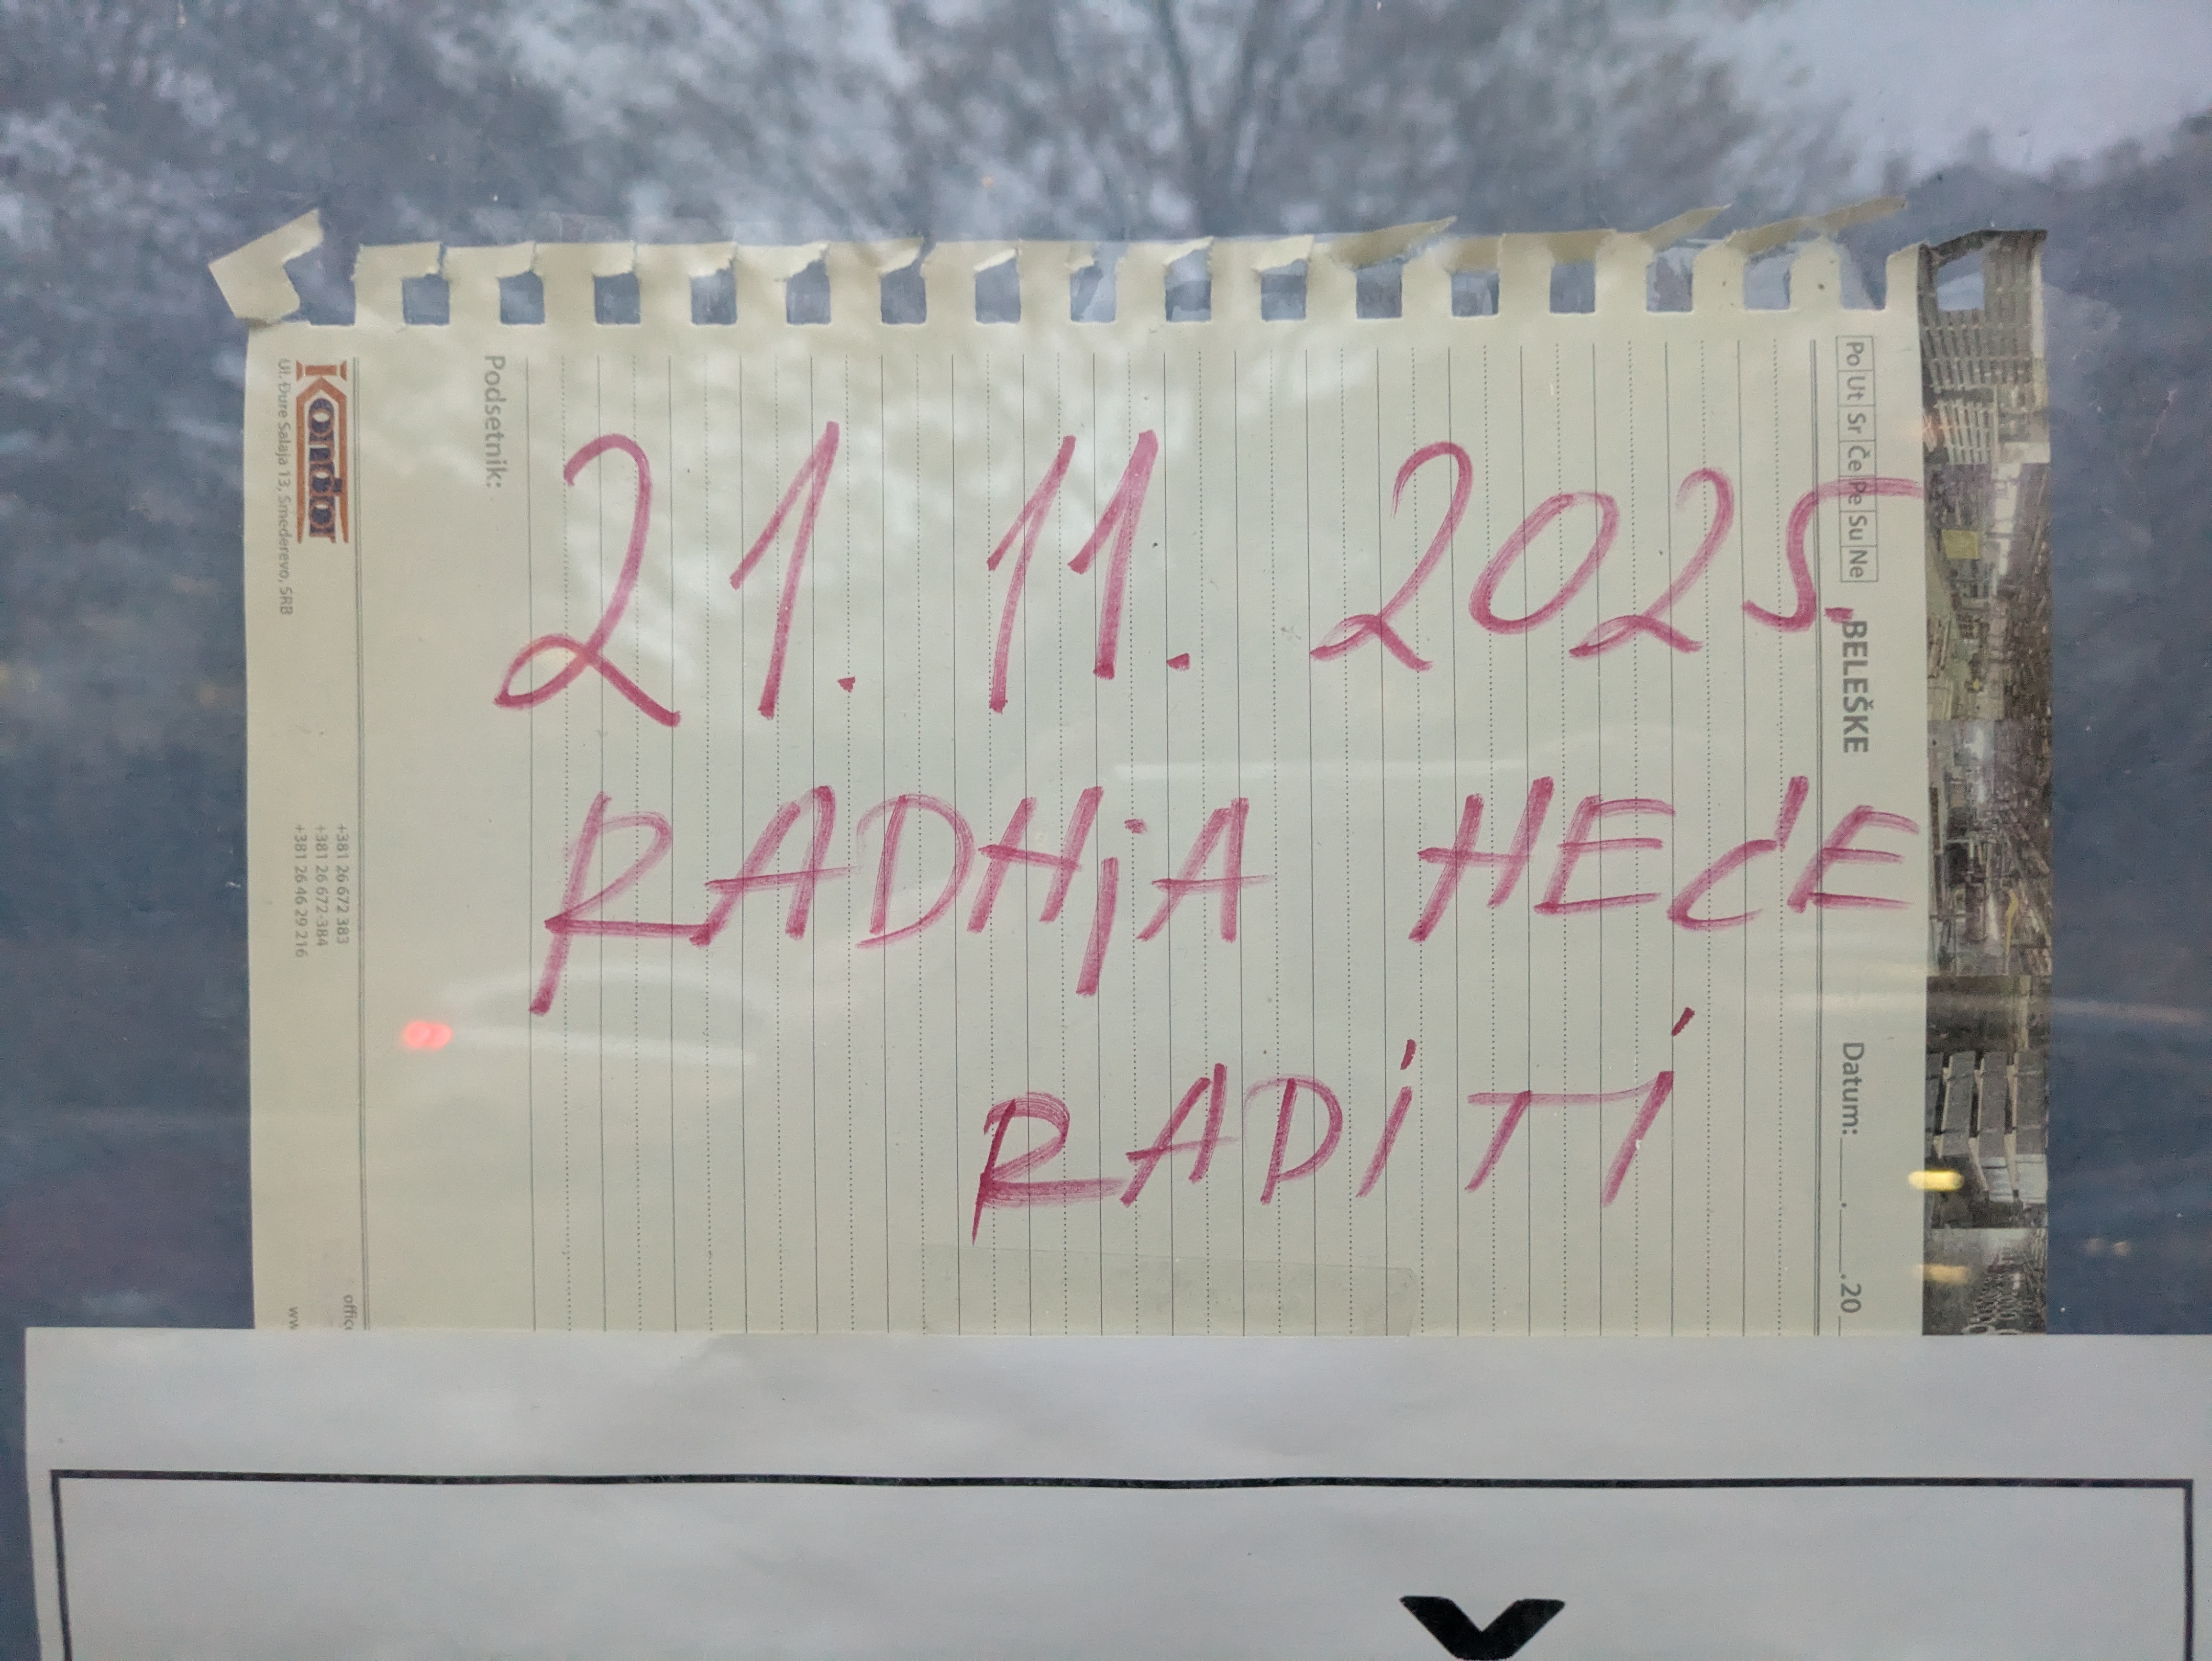 21. 11. 2025.
RADHjA HEĆE
RADİTİ
Po Ut Sr Če Pe Su Ne BELEŠKE Datum: ___.___.20
Podsetnik:
Kondor
Ul. Đure Salaja 13, Smederevo, SRB
+381 26 672 383
+381 26 672-384
+381 26 46 29 216